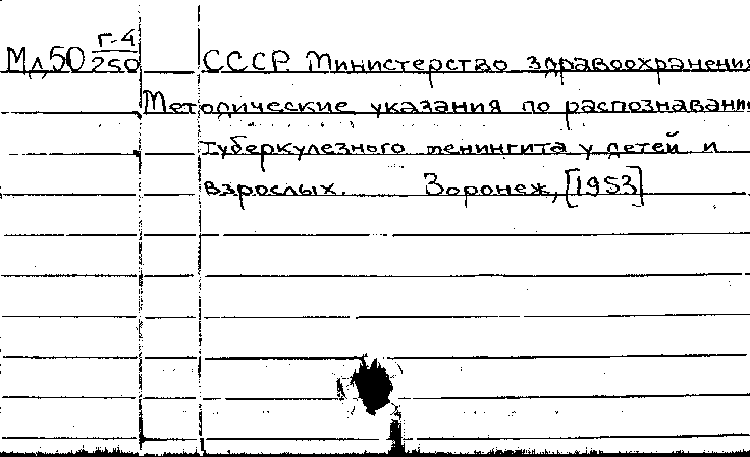 Мд50 Г-4/250 СССР. Министерство здравоохранения
Методические указания по распознавани
туберкулезного менингита у детей и
взрослых. Воронеж, [1953]